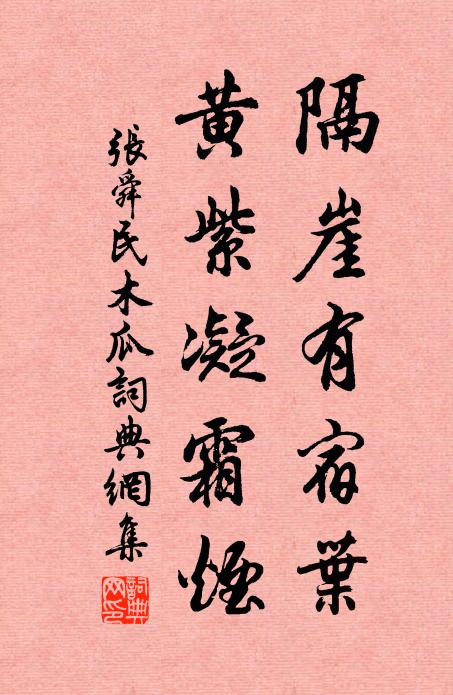 隔崖有宿葉
黄紫凝霜煙
張舜民木瓜詞典網集
詞典網印